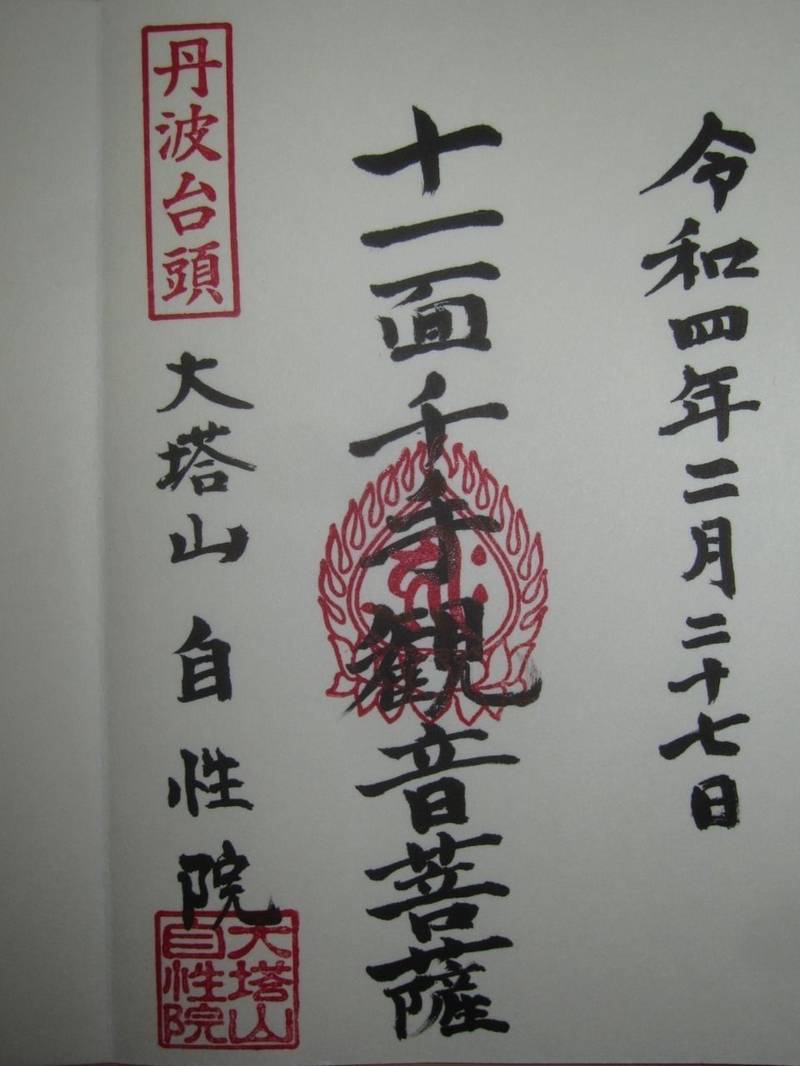 令和四年二月二十七日
十一面千手観音菩薩
丹波台頭
大塔山 自性院
大塔山
自性院